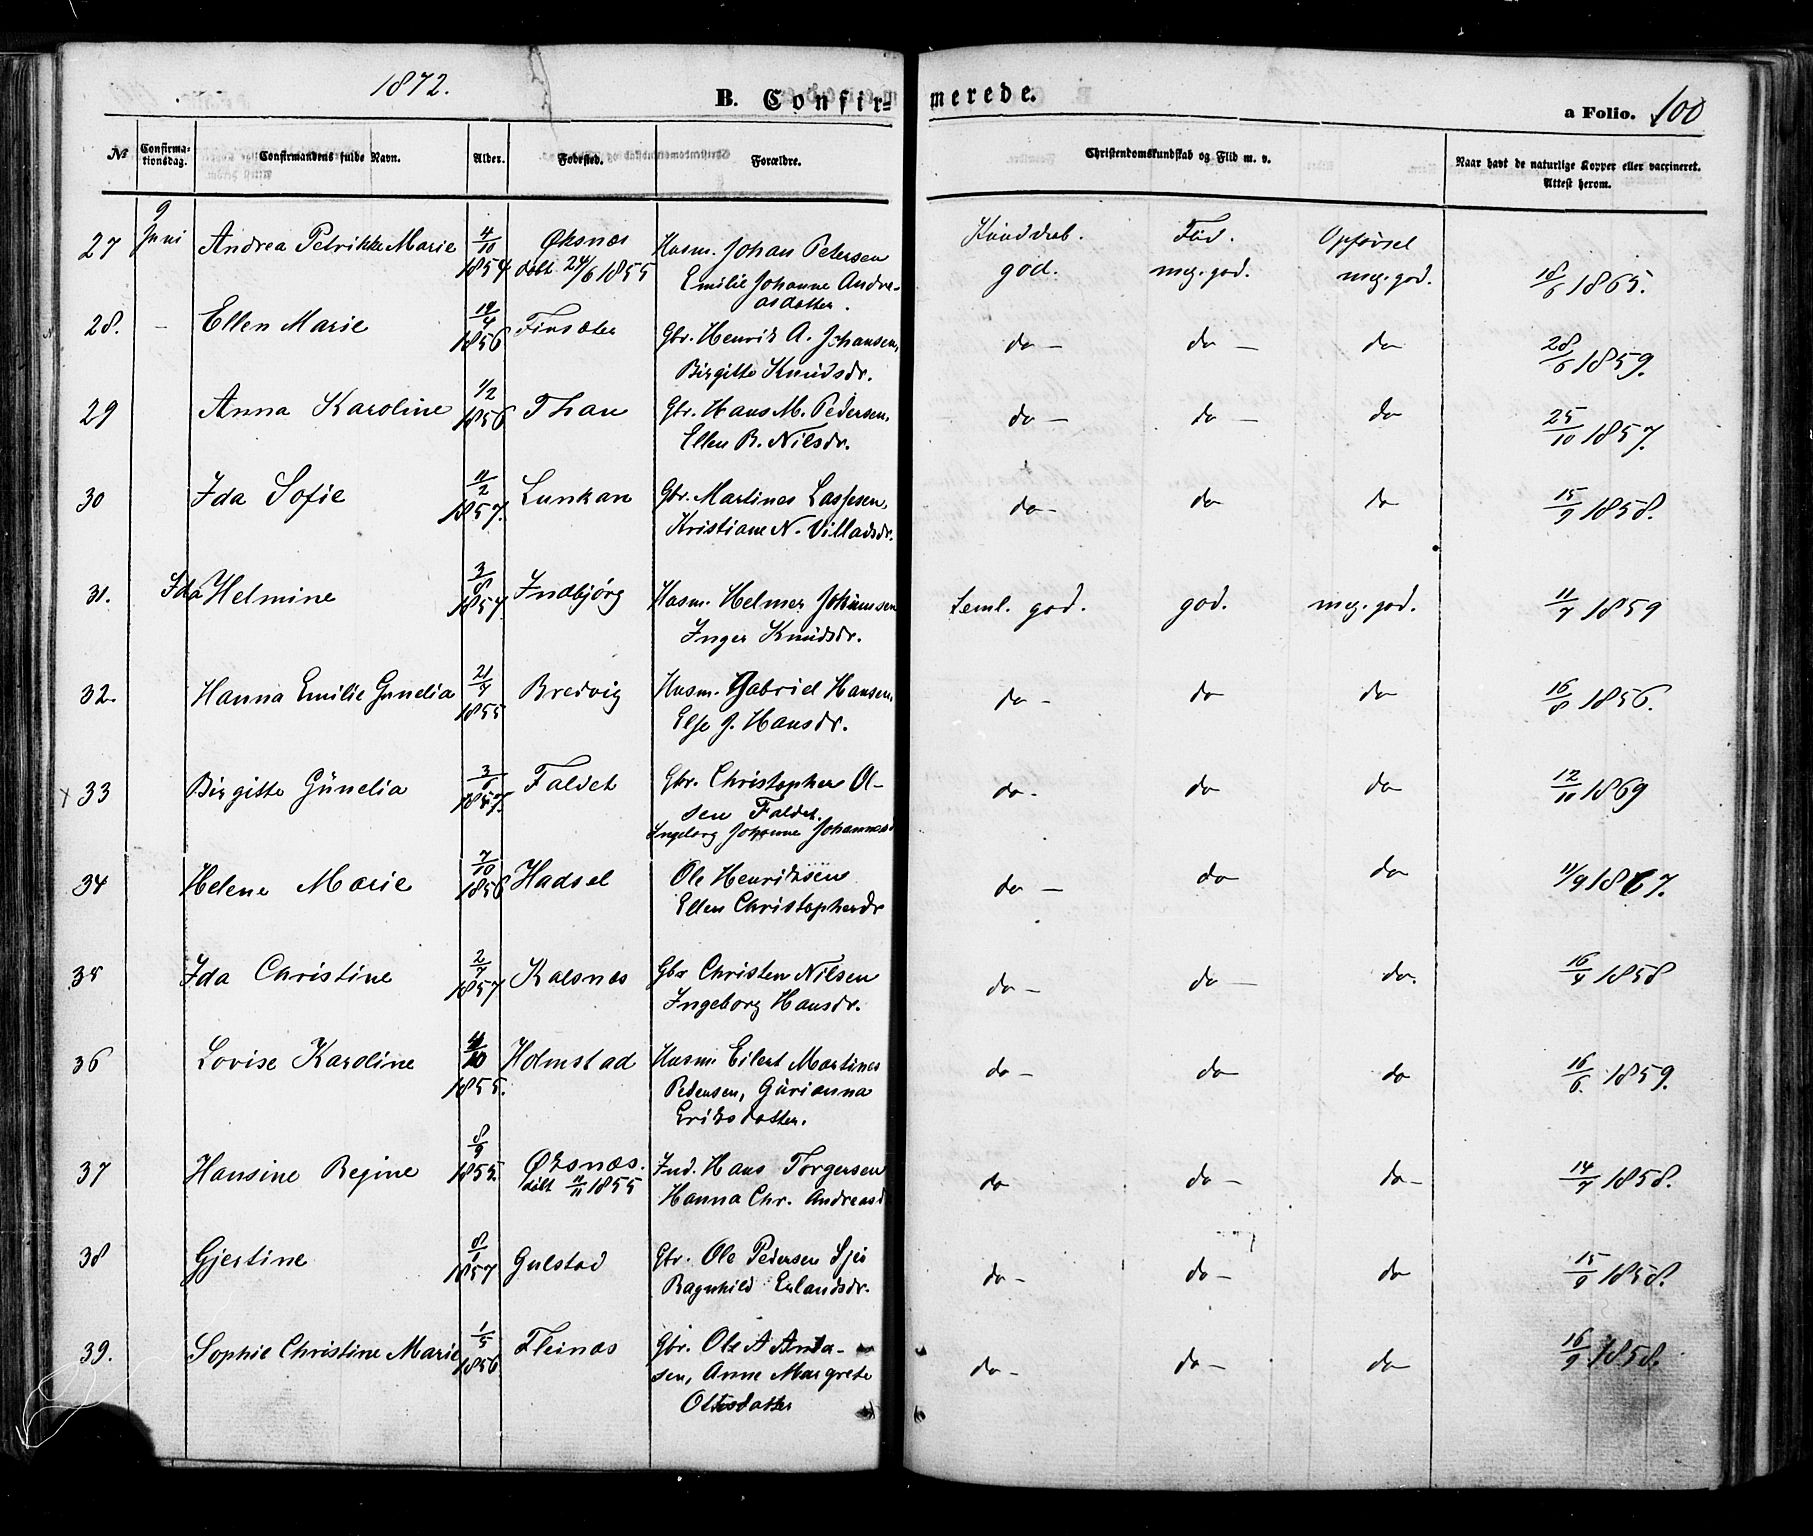 1872.
B. Confir-
merede.
a Folio. 100
No
Confirma-
tionsdag.
Confirmandens fulde Navn.
Alder.
Fødested.
Forældre.
Christendomskundskab og Flid m. v.
Naar havt de naturlige Kopper eller vaccineret.
Attest herom.
27 9 Juni Andrea Petrikke Marie 4/10 1854 Øksnæs døbt 24/6 1855 Husm. Johan Petersen
Emilie Johanne Andre-
asdatter.
Kundskab. god. Flid. meg. god. Opførsel meg. god. 18/6 1865.
28. - Ellen Marie 12/4 1856 Finsæter Gbr. Henrik A. Johansen,
Birgitte Knudsdr.
do - do - do 28/6 1859.
29 Anna Karoline 1/2 1856 Than Gbr. Hans M. Pedersen,
Ellen B. Nilsdr.
do - do - do 25/10 1857.
30 Ida Sofie 11/2 1857. Lunkan Gbr. Martines Lassesen,
Kristiane N. Villadsdr.
do - do do 15/9 1858.
31. Ida Helmine 3/8 1857 Indbjørg Husm. Helmer Johansen
Inger Knudsdr.
Teml. god. god. meg. god. 11/7 1859
32. Hanna Emilie Gunelia 21/7 1855 Bredvig Husm. Gabriel Hansen,
Else J. Hansdr.
do - do do 16/8 1856.
x 33 Birgitte Gunelia 3/6 1857. Faldet Gbr. Christopher Ol-
sen Faldet.
Ingeborg Johanne Johannesd
do. do do 12/10 1869
34 Helene Marie 7/10 1856 Hadsel Ole Henriksen
Ellen Christophersdr
do - do do 11/9 1867.
35 Ida Christine 2/7 1857 Kalsnæs Gbr Christen Nilsen
Ingeborg Hansdr.
do - do - do. 16/4 1858
36 Lovise Karoline 4/10 1855. Holmstad Husm Eilert Martines
Pedersen, Gurianna
Eriksdatter.
do - do do 16/6. 1859.
37 Hansine Regine 8/9 1855. Øksnæs. døbt 11/11 1855 Ind. Hans Torgersen
Hanna Chr. Andreasd
do do - do - 14/7 1858.
38 Gjertine 8/1 1857 Gulstad Gbr. Ole Pedersen Sjei
Ragnhild Erlandsdr.
do - do - do 15/9 1858.
39. Sophie Christine Marie 1/5 1856 Fleinæs Gbr. Ole A
sen, Anne Margrete
do - do - do 16/9 1858.